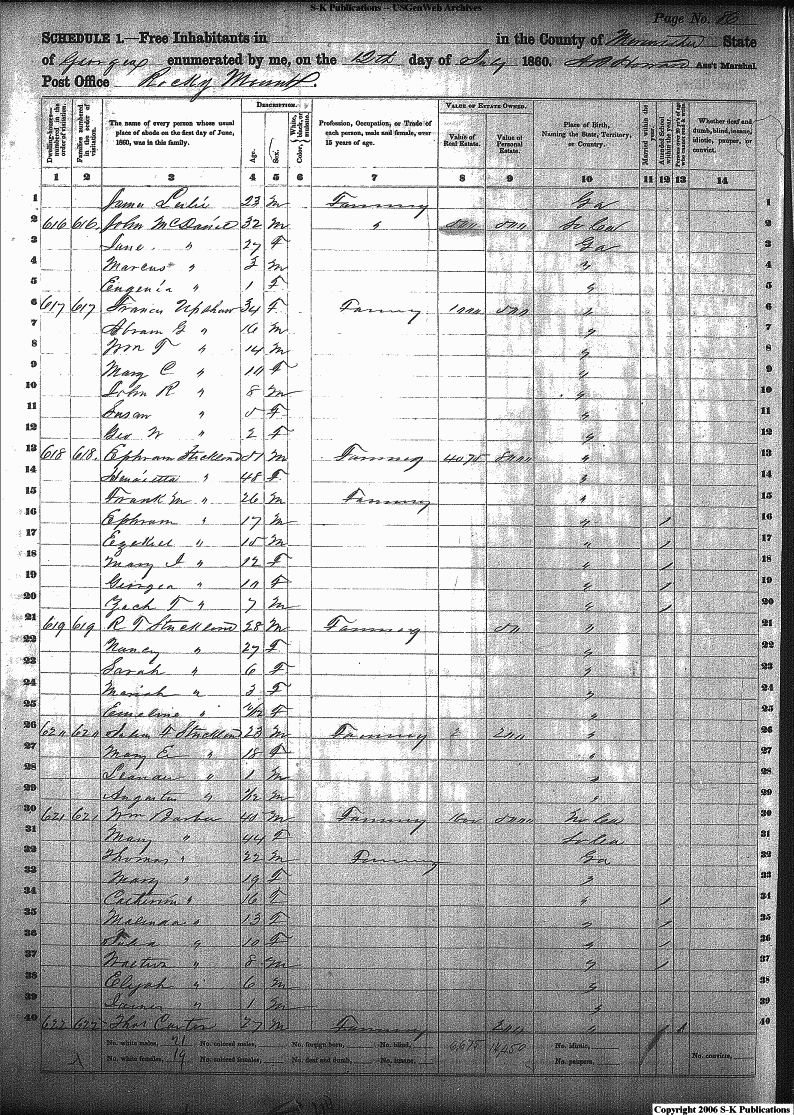 S-K Publications -- USGenWeb Archives
Page No. 86
SCHEDULE 1.—Free Inhabitants in in the County of State
of Georgia enumerated by me, on the 12th day of July 1860. Ass't Marshal
Post Office Rocky Mount.
DESCRIPTION. VALUE OF ESTATE OWNED.
Dwelling-houses—numbered in the order of visitation. Families numbered in the order of visitation. The name of every person whose usual place of abode on the first day of June, 1860, was in this family. Age. Sex. Color, White, black, or mulatto. Profession, Occupation, or Trade of each person, male and female, over 15 years of age. Value of Real Estate. Value of Personal Estate. Place of Birth, Naming the State, Territory, or Country. Married within the year. Attended School within the year. Whether deaf and dumb, blind, insane, idiotic, pauper, or convict.
1 2 3 4 5 6 7 8 9 10 11 12 13 14
1 James Leslie 23 m Farming Ga 1
2 616 616 John McDaniel 32 m " 500 500 So Ca 2
3 Jane " 27 F Ga 3
4 Marcus " 3 m " 4
5 Eugenia " 1 F " 5
6 617 617 Francis Upshaw 34 F Farming 1000 500 " 6
7 Abram G " 16 m " 7
8 Wm T " 14 m " 8
9 Mary C " 10 F " 9
10 John R " 8 m " 10
11 Susan " 5 F " 11
12 Geo W " 2 F " 12
13 618 618 Ephram Strickland 51 m Farming 4075 " 13
14 Henrietta " 48 F " 14
15 Frank M " 26 m Farming " 15
16 Ephram " 17 m " / 16
17 Ezekiel " 15 m " / 17
18 Mary J " 12 F " / 18
19 Georgea " 10 F " / 19
20 Zach T " 7 m " / 20
21 619 619 R T Strickland 28 m Farming 50 " 21
22 Nancy " 27 F " 22
23 Sarah " 6 F " 23
24 Mariah " 3 F " 24
25 Emeline " F " 25
26 620 620 F Strickland 23 m Farming 200 " 26
27 Mary E " 18 F " 27
28 Leander " 1 m " 28
29 Augustus " m " 29
30 621 621 Wm Barber 45 m Farming 1600 No Ca 30
31 Mary " 44 F So Ca 31
32 Thomas " 22 m Farming Ga 32
33 Mary " 19 F " 33
34 Catherine " 16 F " / 34
35 Malinda " 13 F " / 35
36 " 10 F " / 36
37 " 8 m " / 37
38 Elijah " 6 m " 38
39 " 1 m " 39
40 622 622 Thos Carton 77 m Farming 200 " 40
No. white males, 21 No. colored males, No. foreign born, No. blind, 6,675 No. idiotic,
No. white females, 19 No. colored females, No. deaf and dumb, No. insane, No. paupers, No. convicts,
Copyright 2006 S-K Publications